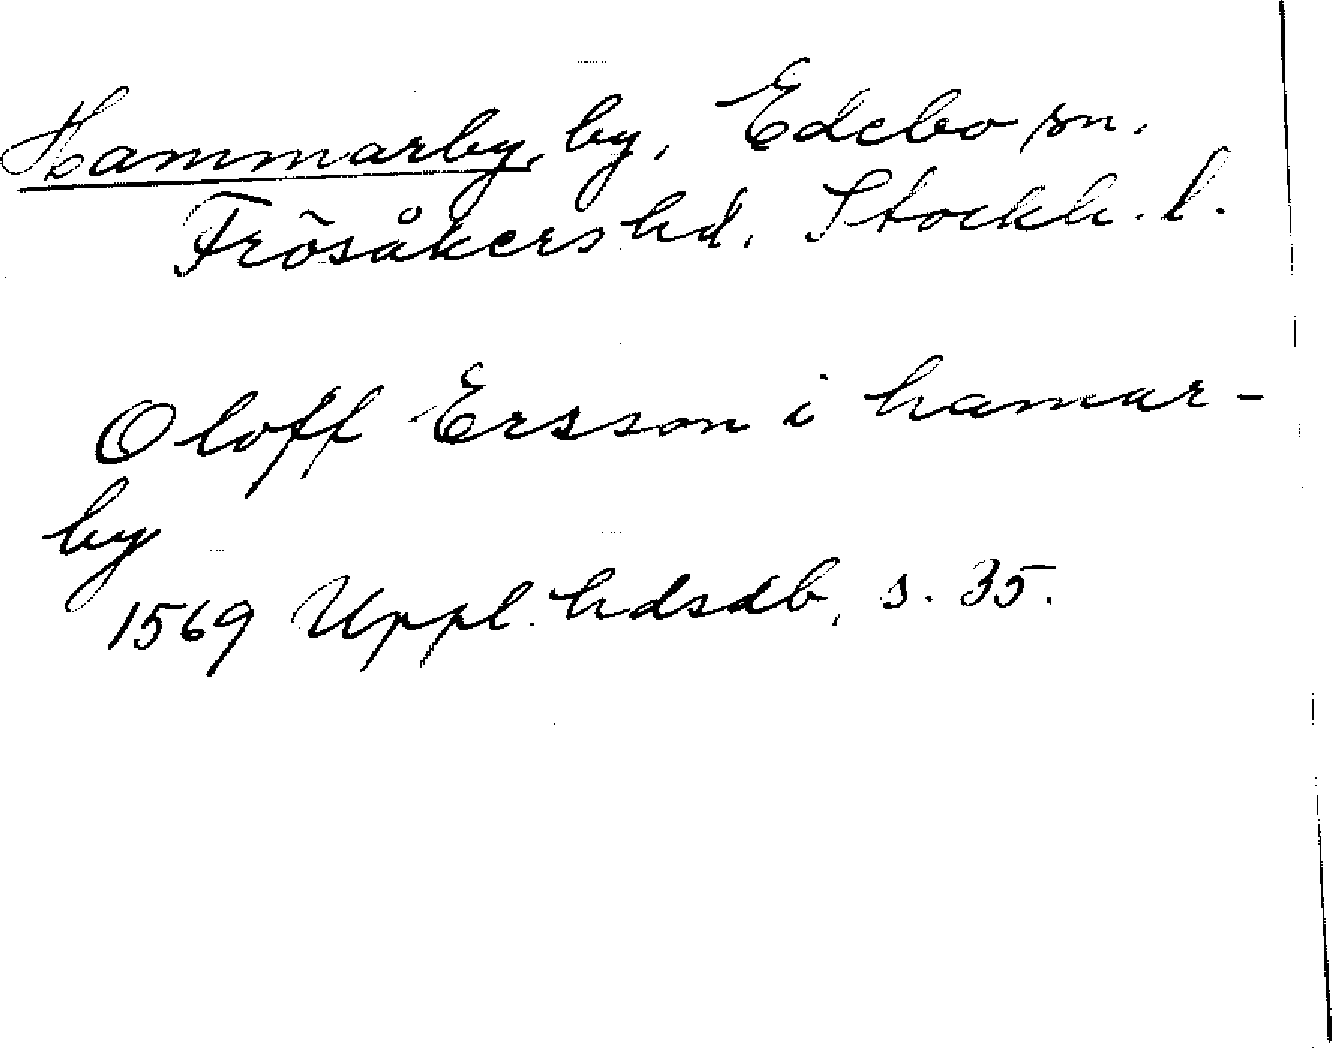 Hammarby, by, Edebo sn.
Frösåkers hd. Stockh. l.
Oloff Ersson i hamar-
by
1569 Uppl. hdsdb, s. 35.